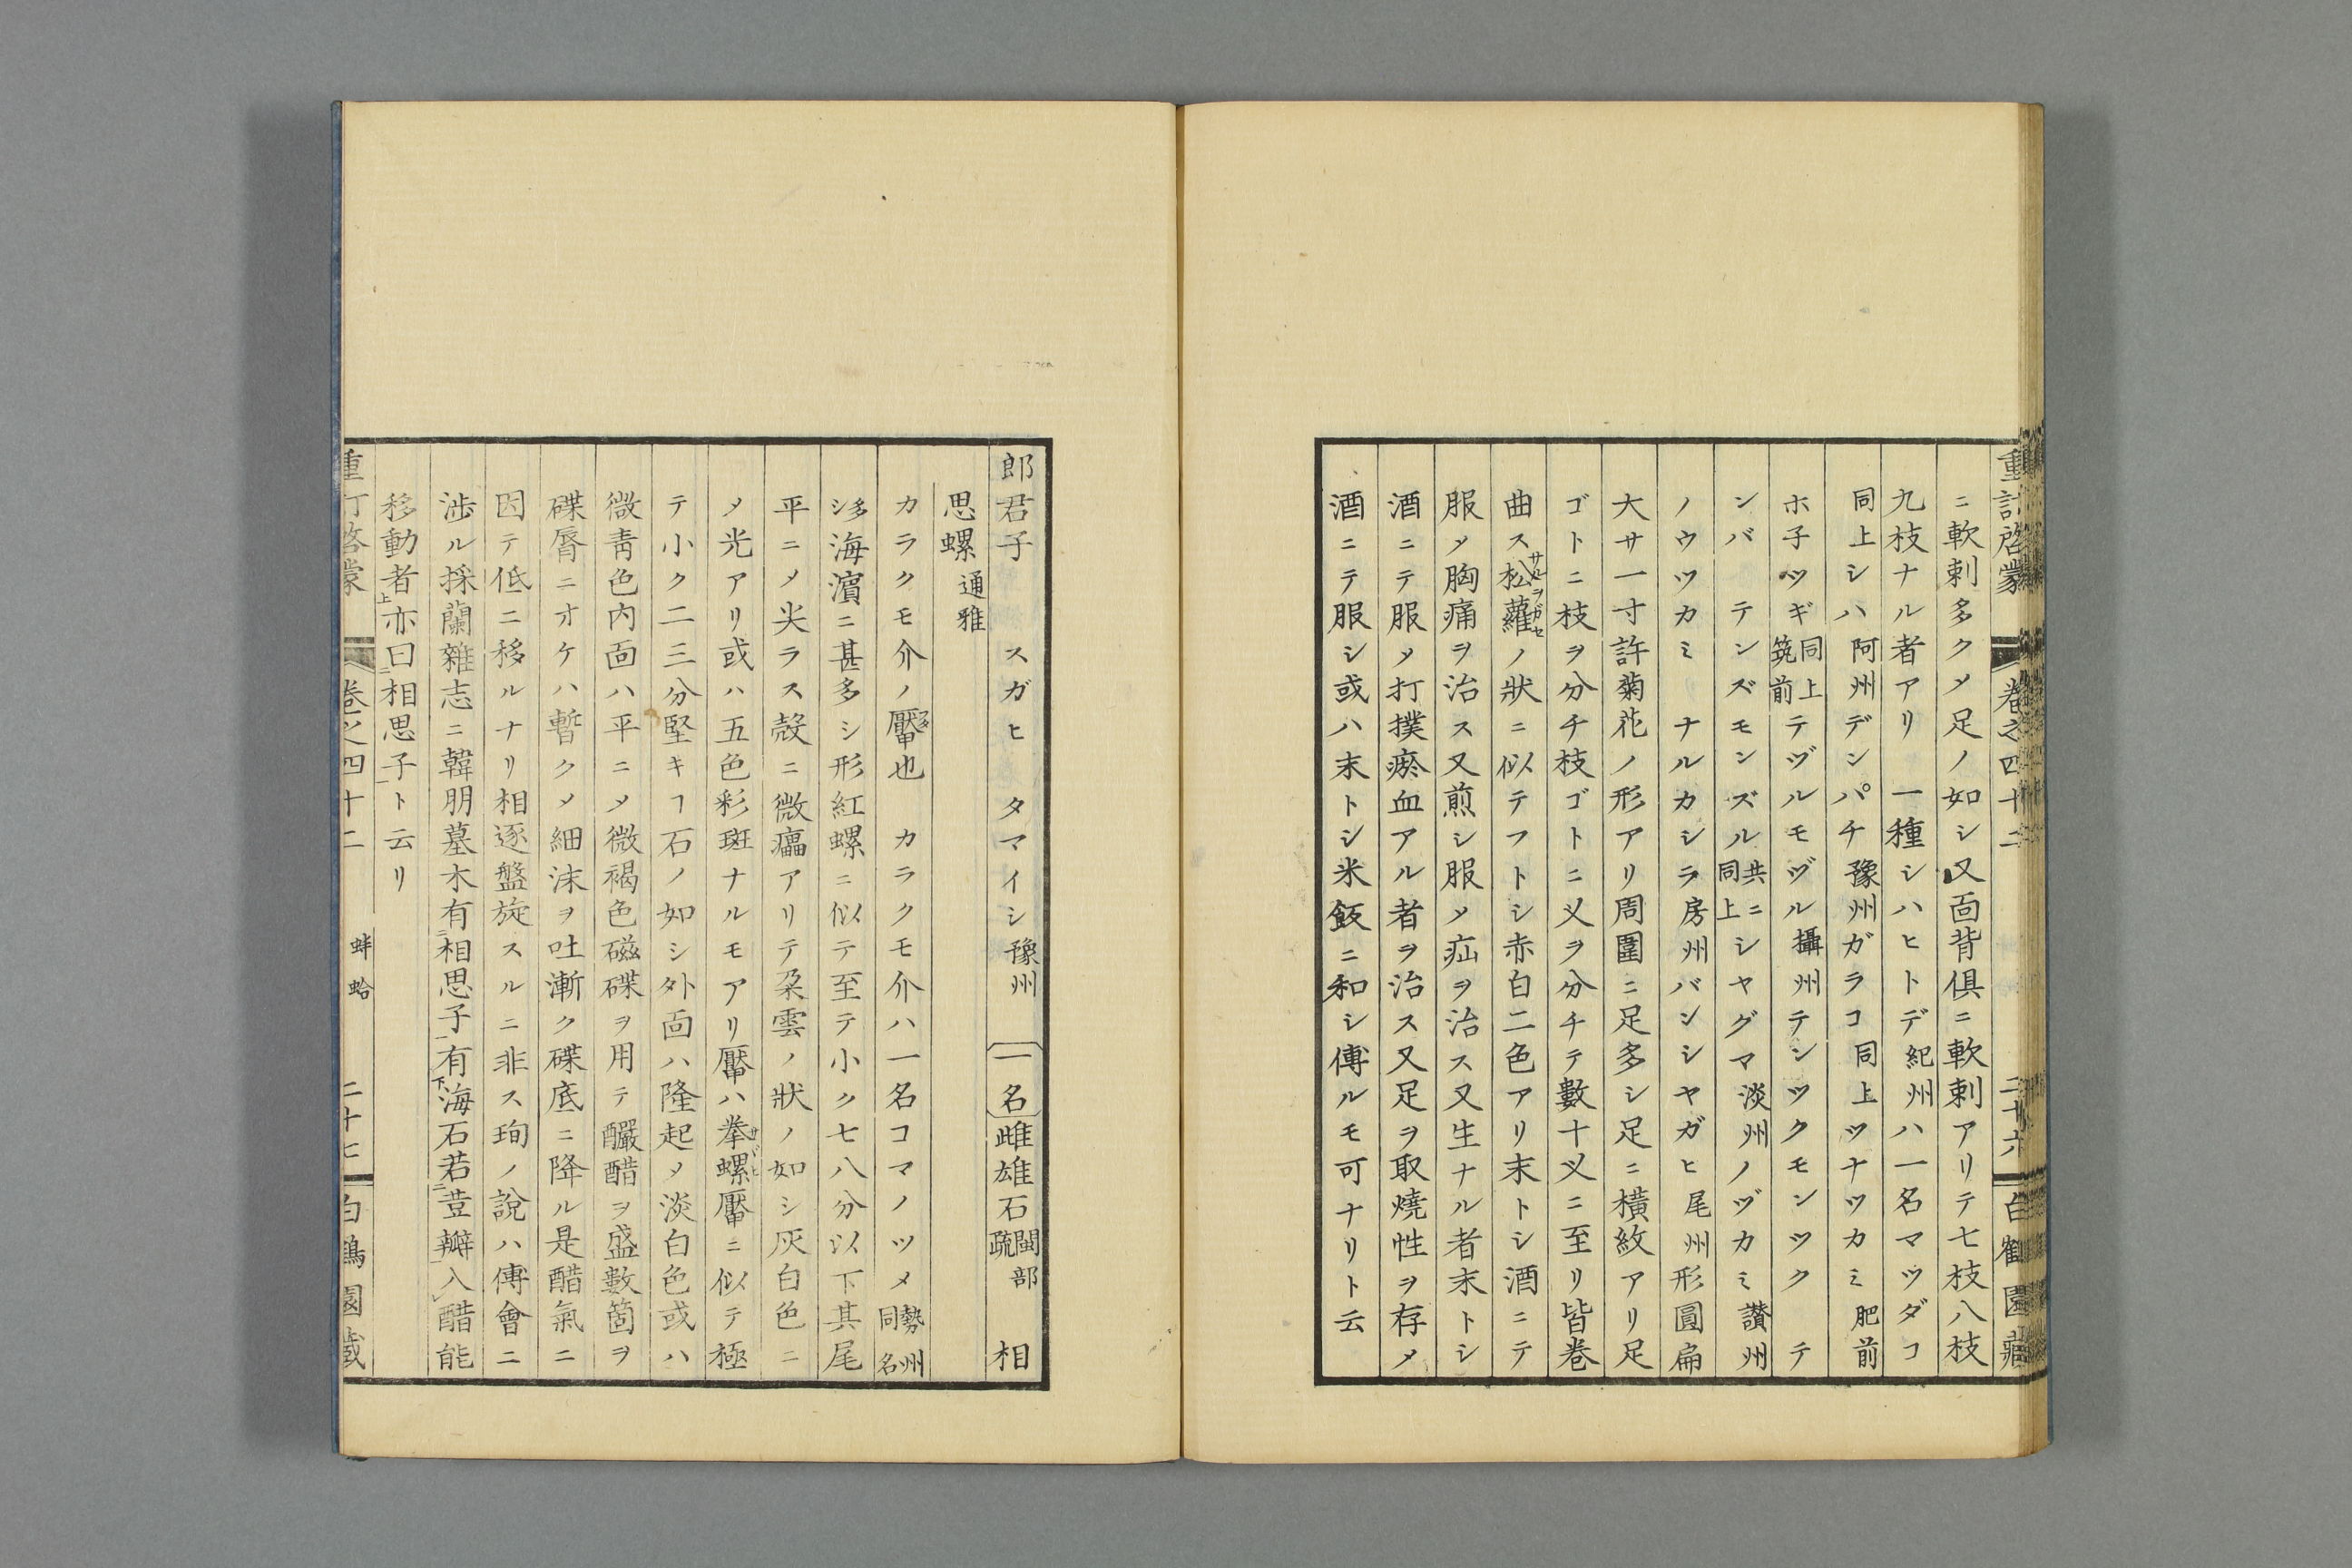 重訂啓蒙 卷之四十二 二十六 白鶴園藏
ニ軟刺多クメ足ノ如シ又面背俱ニ軟刺アリテ七枝八枝
九枝ナル者アリ 一種シハヒトデ紀州ハ一名マツダコ
同上シハ阿州デンパチ豫州ガラコ同上ツナツカミ肥前
ホ子ツギ同上筑前テヅルモヅル攝州テンツクモンツク テ
ンバ テンズモンズル共ニ同上シヤグマ淡州ノヅカミ讃州
ノウツカミ ナルカシラ房州バンシヤガヒ尾州形圓扁
大サ一寸許菊花ノ形アリ周圍ニ足多シ足ニ横紋アリ足
ゴトニ枝ヲ分チ枝ゴトニ乂ヲ分チテ數十乂ニ至リ皆卷
曲ス松蘿サルヲガセノ狀ニ似テフトシ赤白二色アリ末トシ酒ニテ
服メ胸痛ヲ治ス又煎シ服メ疝ヲ治ス又生ナル者末トシ
酒ニテ服メ打撲瘀血アル者ヲ治ス又足ヲ取燒性ヲ存メ
酒ニテ服シ或ハ末トシ米飯ニ和シ傅ルモ可ナリト云
郎君子 スガヒ タマイシ豫州 一名 雌雄石閩部疏 相
思螺通雅
カラクモ介ノ靨フタ也 カラクモ介ハ一名コマノツメ勢州同名
多シ海濵ニ甚多シ形紅螺ニ似テ至テ小ク七八分以下其尾
平ニメ尖ラス殼ニ微癟アリテ朶雲ノ狀ノ如シ灰白色ニ
メ光アリ或ハ五色彩斑ナルモアリ靨ハ拳螺サザヒ靨ニ似テ極
テ小ク二三分堅キヿ石ノ如シ外面ハ隆起メ淡白色或ハ
微靑色內面ハ平ニメ微褐色磁碟ヲ用テ釅醋ヲ盛數箇ヲ
碟脣ニオケハ暫クメ細沫ヲ吐漸ク碟底ニ降ル是醋氣ニ
因テ低ニ移ルナリ相逐盤旋スルニ非ス珣ノ說ハ傅會ニ
涉ル採蘭雜志ニ韓朋墓木有二相思子一有下海石若二荳瓣一入醋能
移動者上亦曰二相思子一ト云リ
重訂啓蒙 卷之四十二 蚌蛤 二十七 白鶴園藏